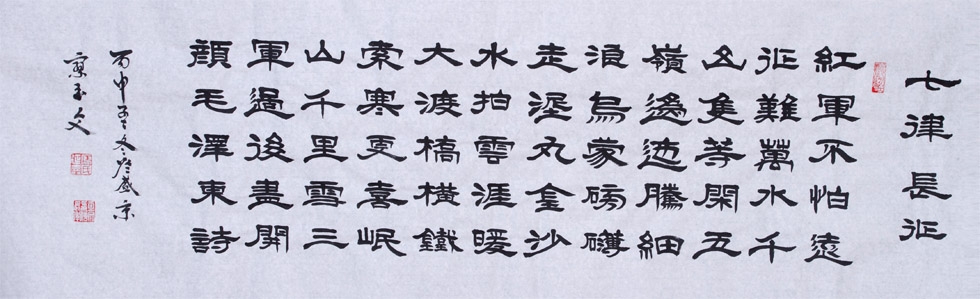 七律長征
紅軍不怕遠
征難萬水千
山隻等閑五
嶺逶迤騰細
浪烏蒙磅礴
走泥丸金沙
水拍雲涯暖
大渡橋橫鐵
索寒更喜岷
山千里雪三
軍過後盡開
顏毛澤東詩
丙申年冬於盛京